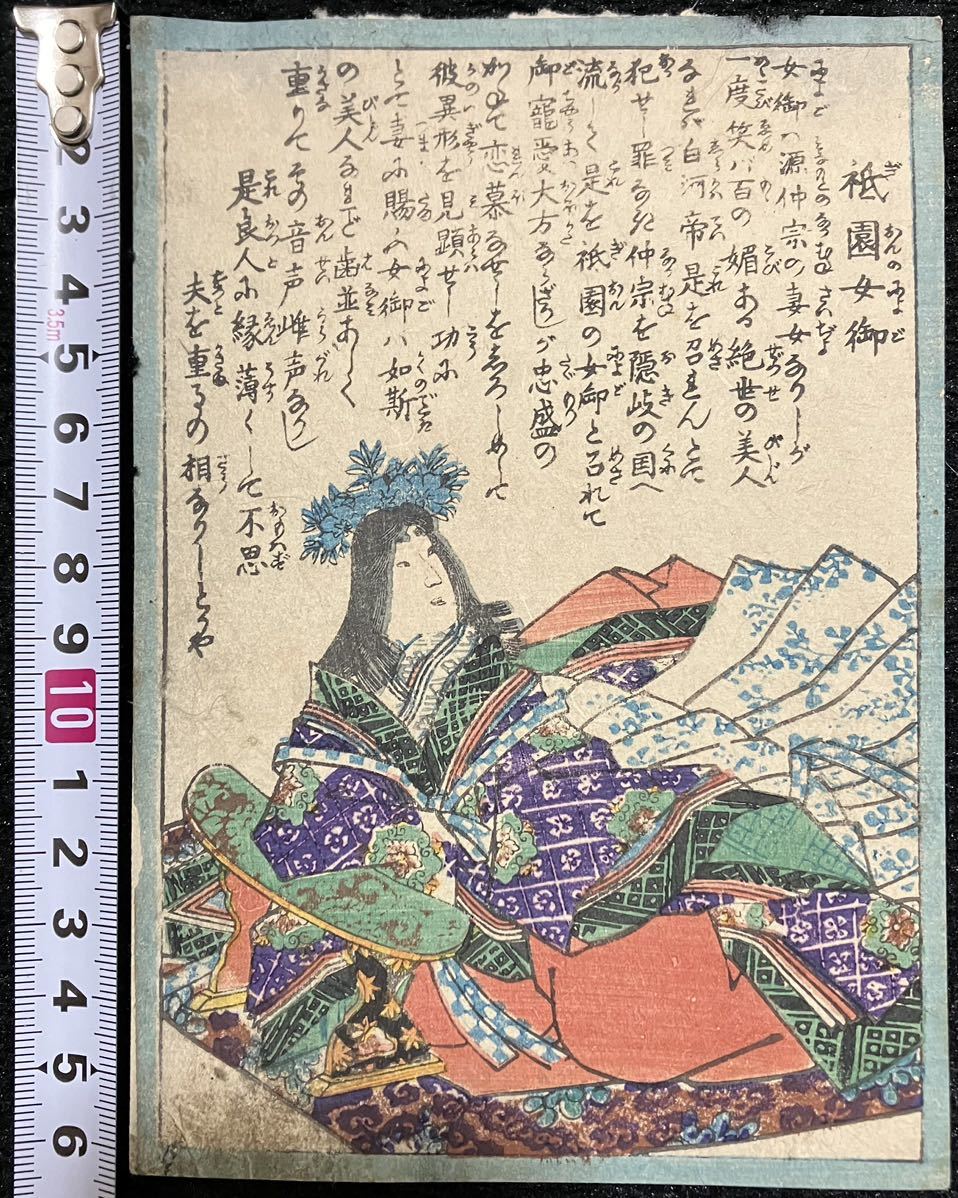 祇園女御
ぎおんのにょご
女御ハ源仲宗の妻女なりしが
一度笑バ百の媚ある絶世の美人
なれバ白河帝是を召れんとて
犯せし罪なき仲宗を隠岐の国へ
流して是を祇園の女御と召れて
御寵愛大方ならざりしが忠盛の
かねて恋慕なせしをしろしめして
彼異形を見顕せし功に
とて妻に賜ハる女御ハ如斯
の美人なれど歯並あしく
重りてその音声雌声なりし
是良人に縁薄くして不思
夫を重るの相なりしとかや
2
3
4
3.5m
5
6
7
8
9
10
1
2
3
4
5
6